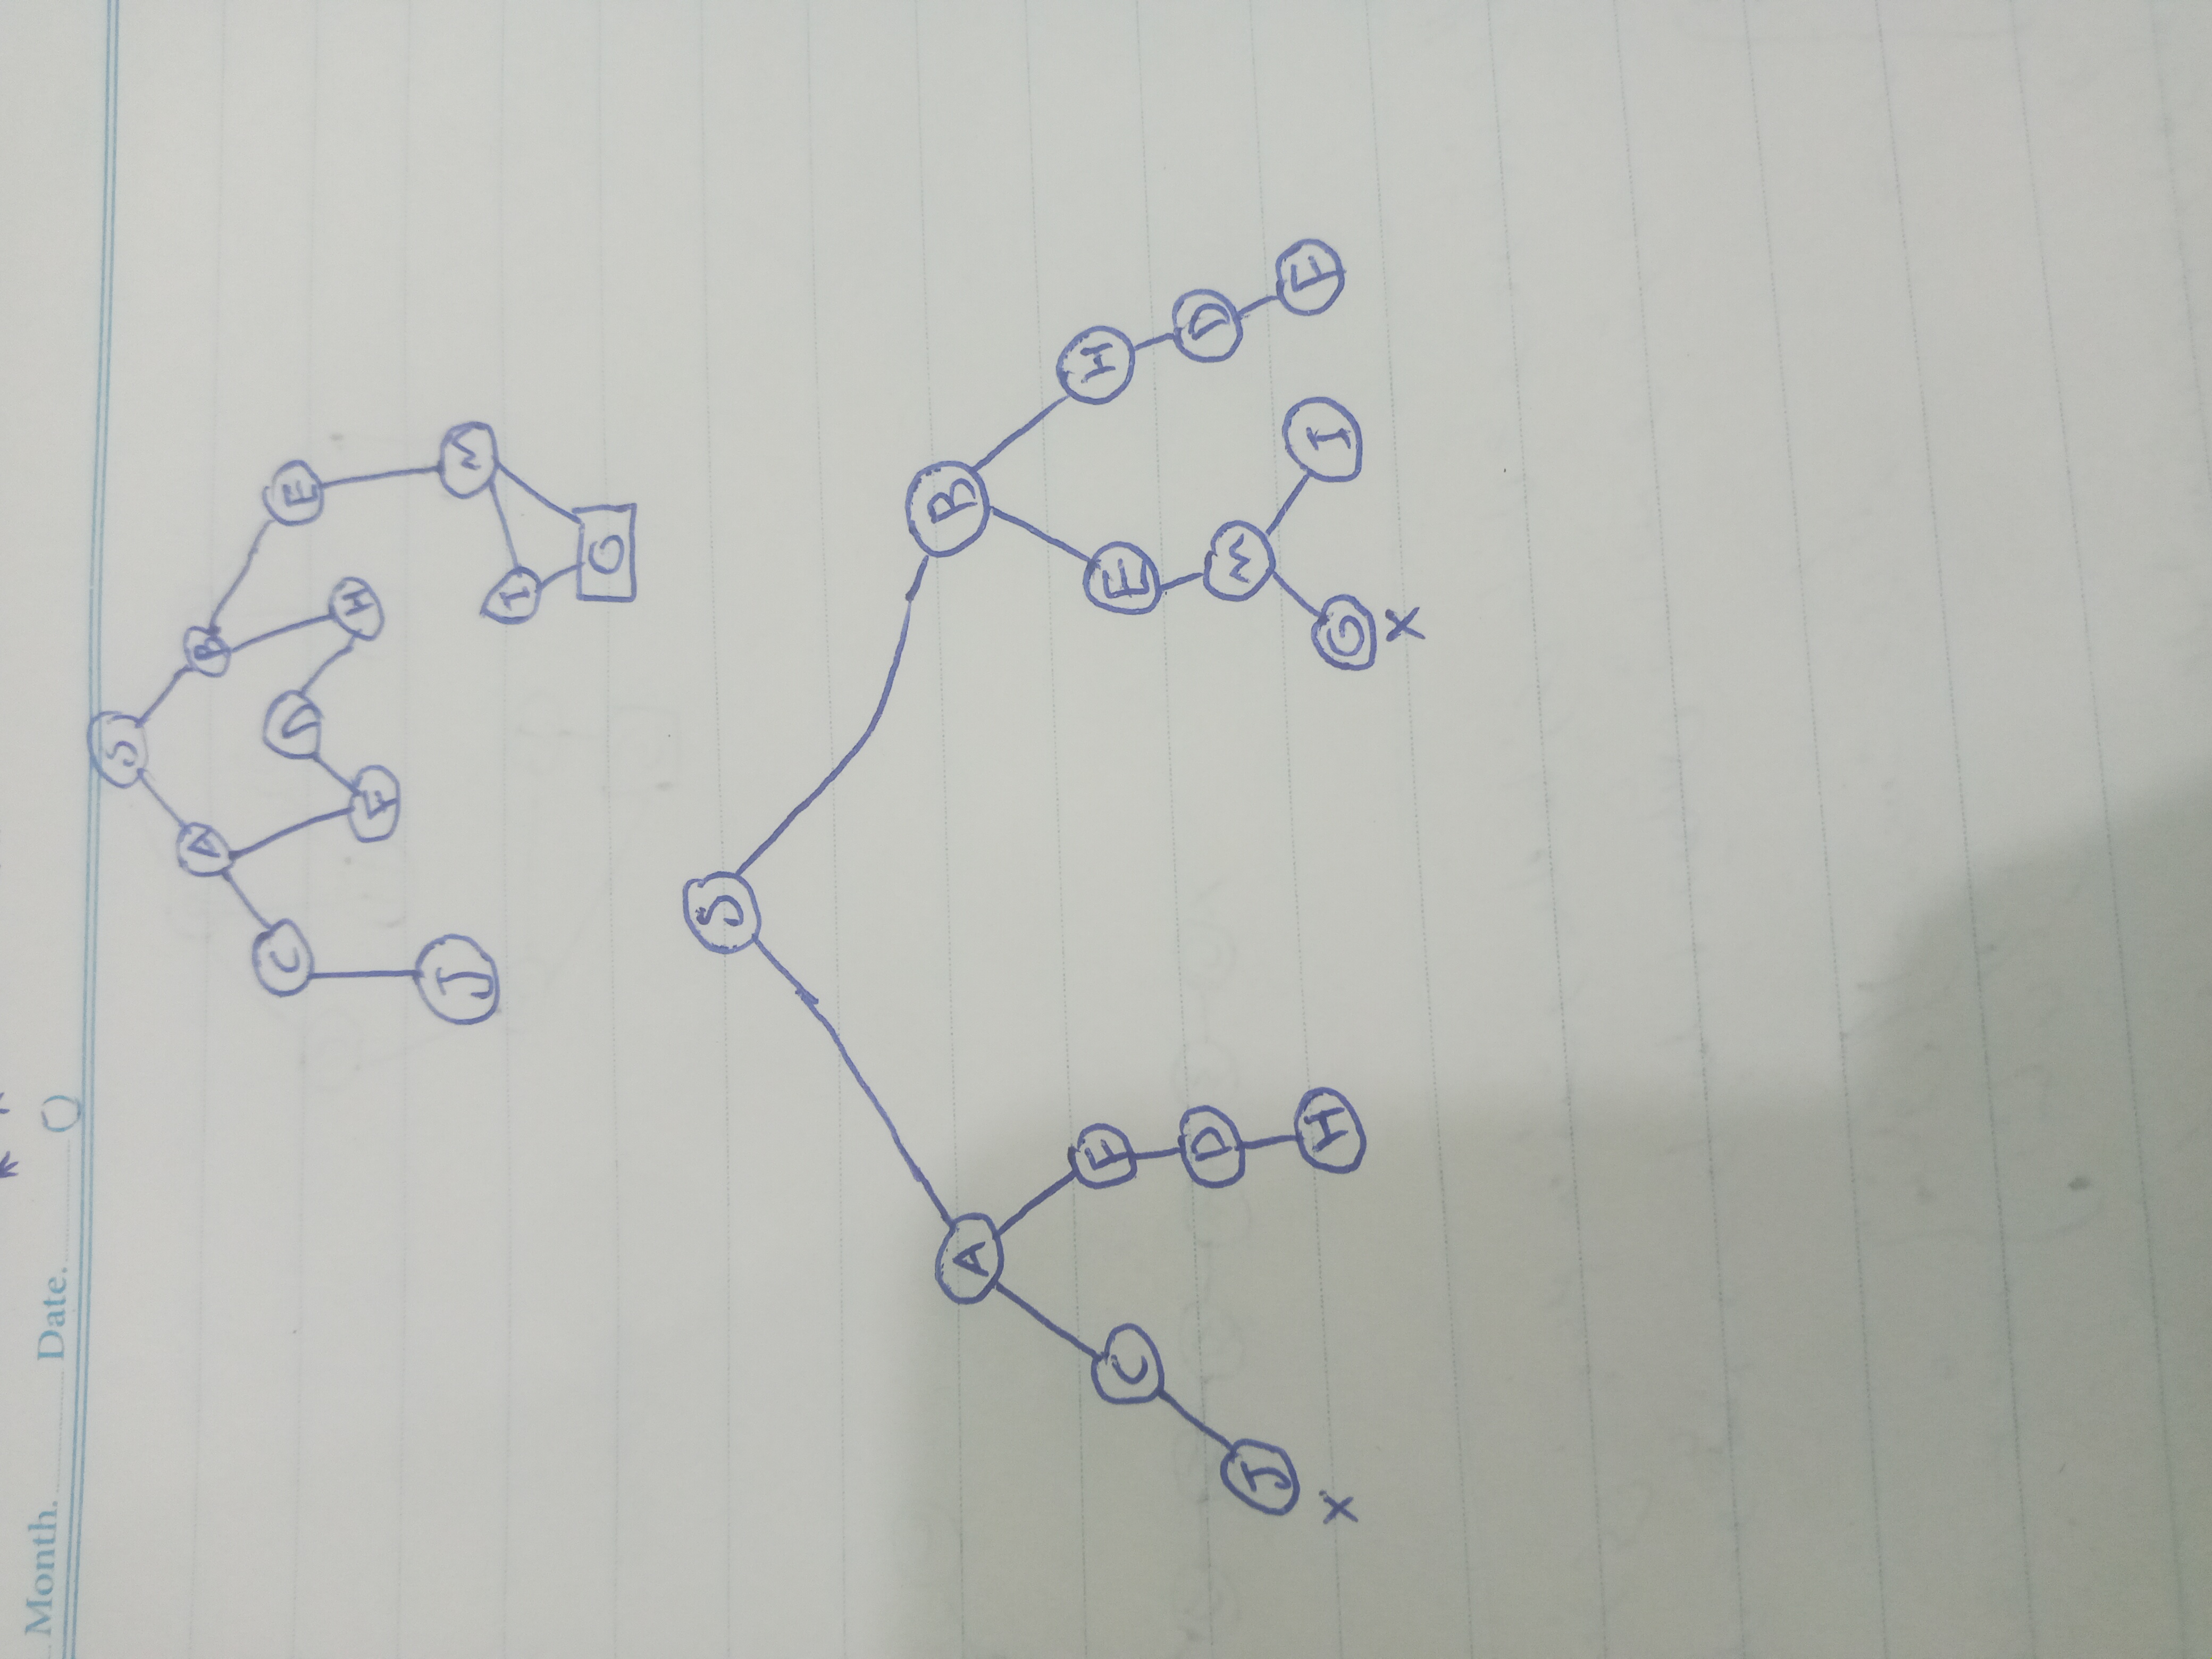 Month. Date.
S
A B
C D E
F H
J M
I
G
S
A B
C F E H
J D M D
X H G I F
X